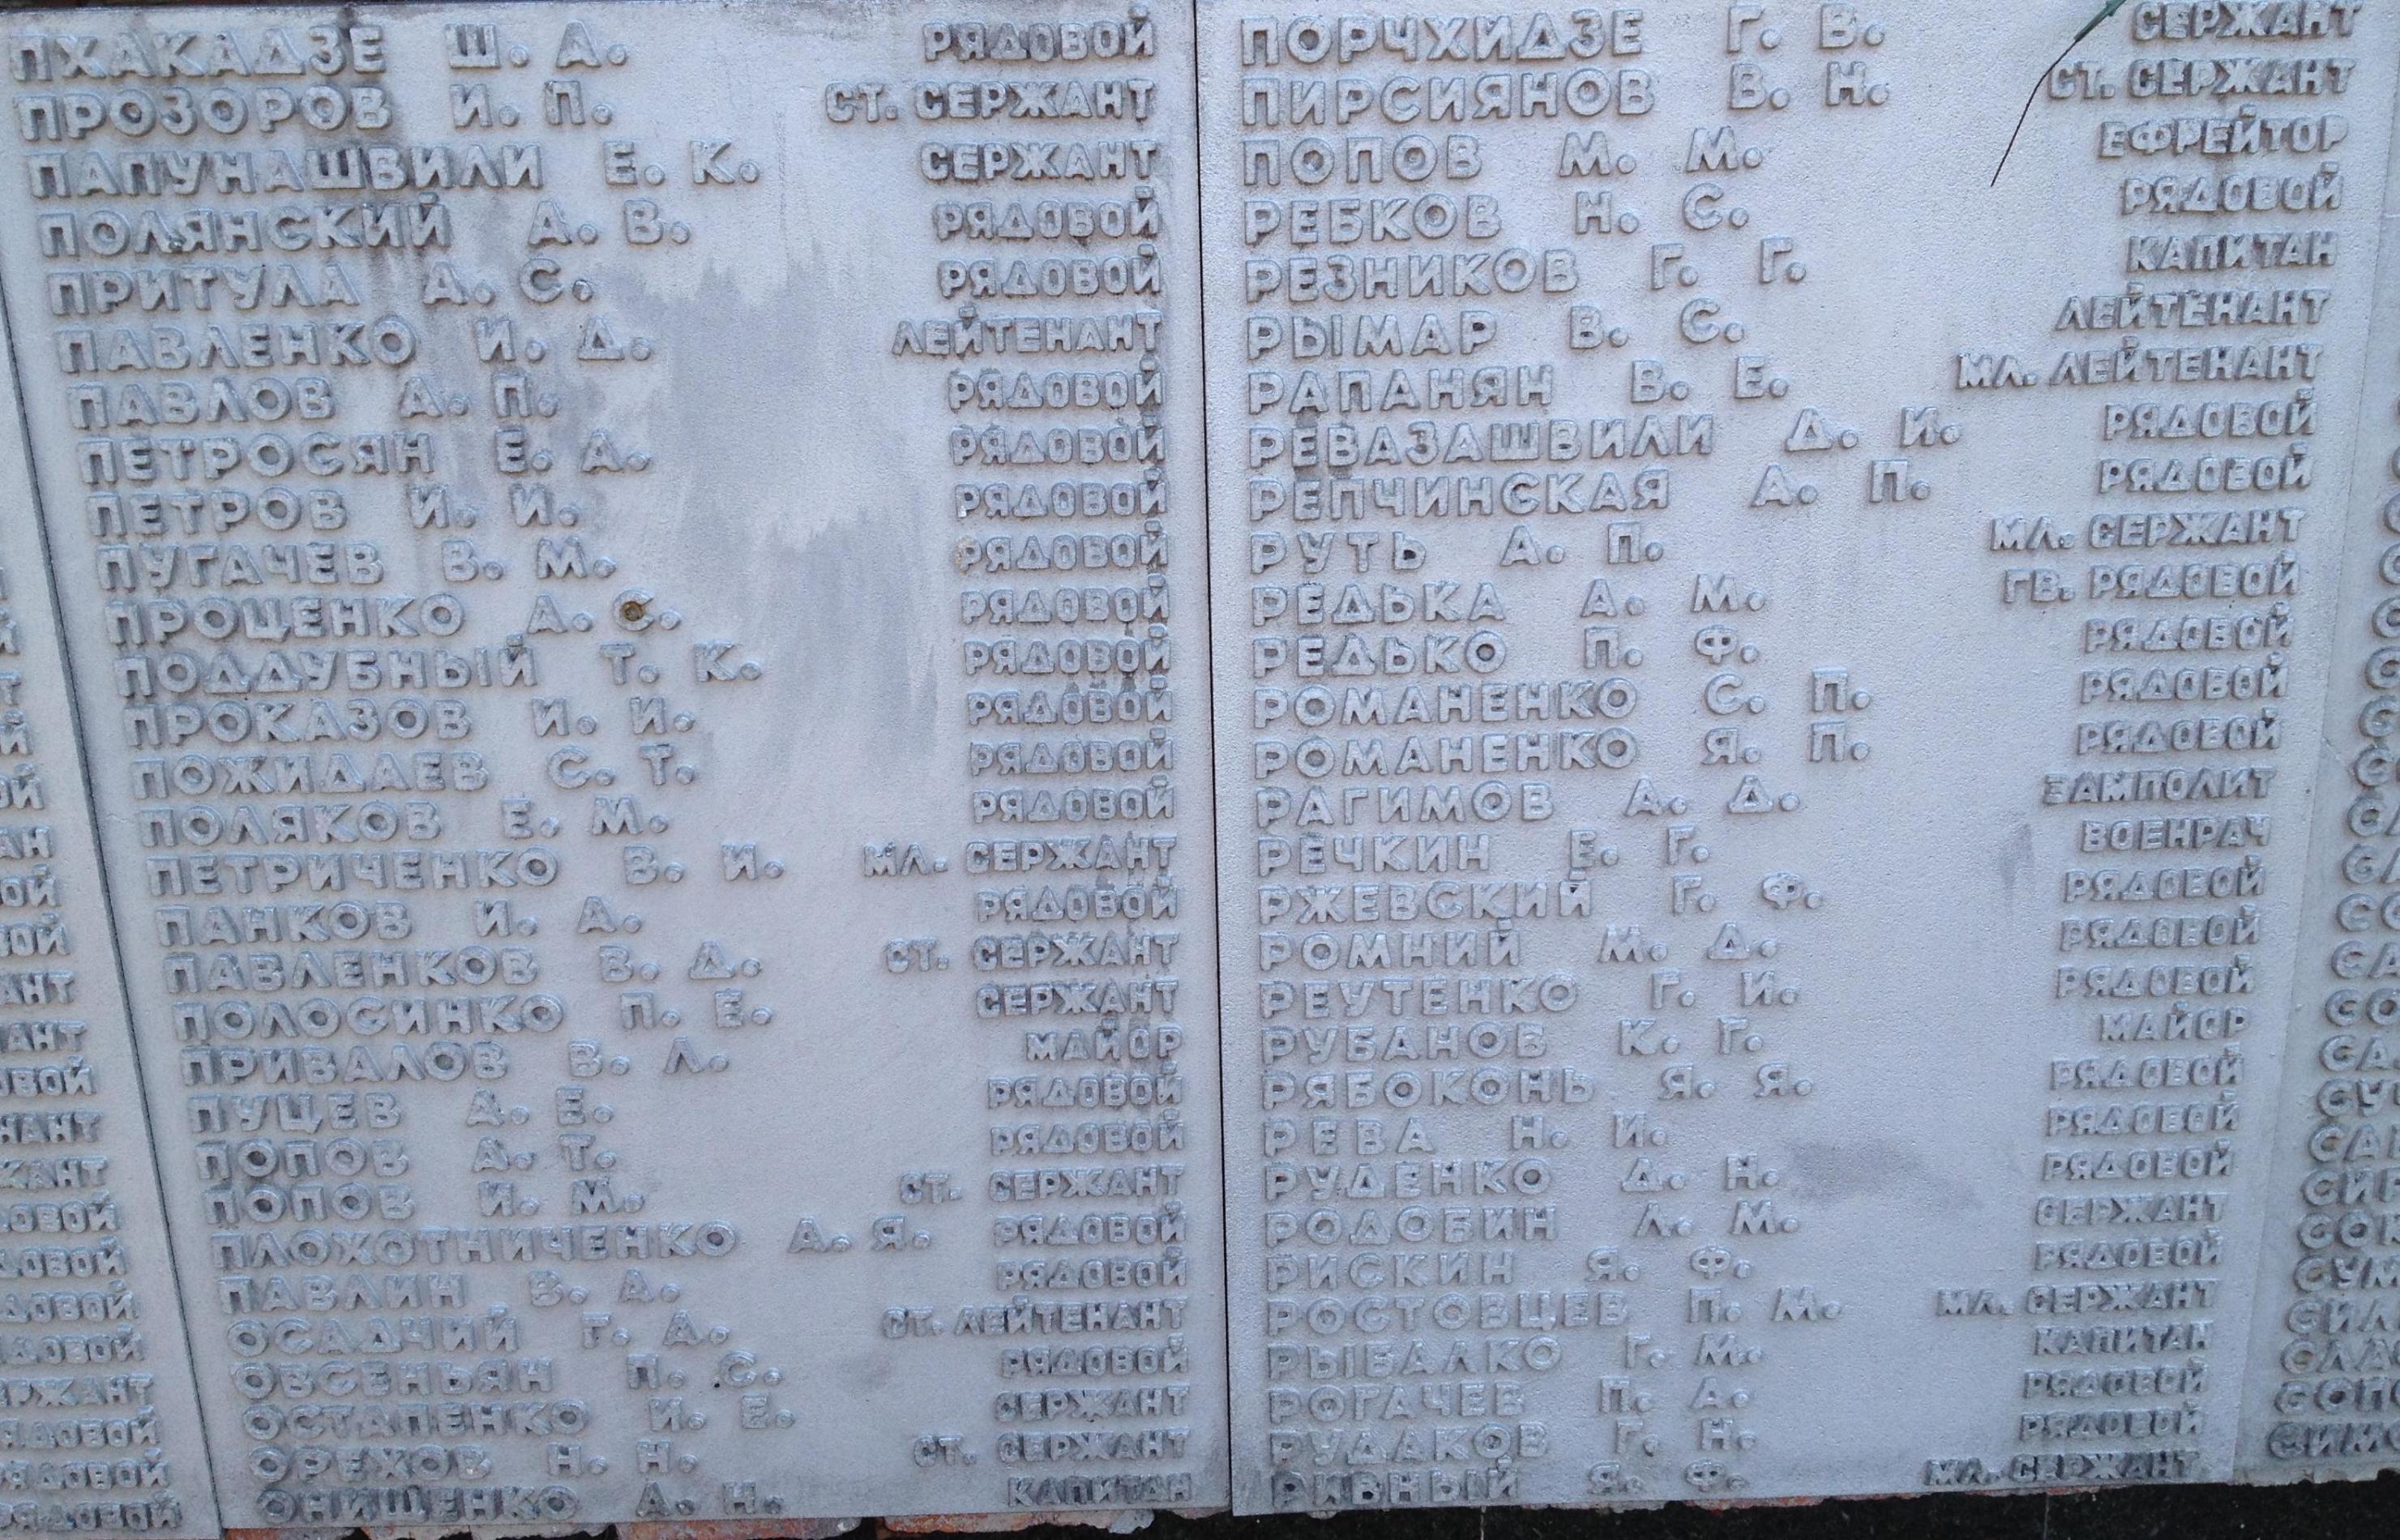 ПХАКАДЗЕ Ш. А. РЯДОВОЙ
ПРОЗОРОВ И. П. СТ. СЕРЖАНТ
ПАПУНАШВИЛИ Е. К. СЕРЖАНТ
ПОЛЯНСКИЙ А. В. РЯДОВОЙ
ПРИТУЛА А. С. РЯДОВОЙ
ПАВЛЕНКО И. Д. ЛЕЙТЕНАНТ
ПАВЛОВ А. П. РЯДОВОЙ
ПЕТРОСЯН Е. А. РЯДОВОЙ
ПЕТРОВ И. И. РЯДОВОЙ
ПУГАЧЕВ В. М. РЯДОВОЙ
ПРОЦЕНКО А. С. РЯДОВОЙ
ПОДДУБНЫЙ Т. К. РЯДОВОЙ
ПРОКАЗОВ И. И. РЯДОВОЙ
ПОЖИДАЕВ С. Т. РЯДОВОЙ
ПОЛЯКОВ Е. М. РЯДОВОЙ
ПЕТРИЧЕНКО В. И. МЛ. СЕРЖАНТ
ПАНКОВ И. А. РЯДОВОЙ
ПАВЛЕНКОВ В. Д. СТ. СЕРЖАНТ
ПОЛОСИНКО П. Е. СЕРЖАНТ
ПРИВАЛОВ В. Л. МАЙОР
ПУЦЕВ А. Е. РЯДОВОЙ
ПОПОВ А. Т. РЯДОВОЙ
ПОПОВ И. М. СТ. СЕРЖАНТ
ПЛОХОТНИЧЕНКО А. Я. РЯДОВОЙ
ПАВЛИН В. А. РЯДОВОЙ
ОСАДЧИЙ Г. А. СТ. ЛЕЙТЕНАНТ
ОВСЕНЬЯН П. С. РЯДОВОЙ
ОСТАПЕНКО И. Е. СЕРЖАНТ
ОРЕХОВ Н. Н. СТ. СЕРЖАНТ
ОНИЩЕНКО А. Н. КАПИТАН
ПОРЧХИДЗЕ Г. В. СЕРЖАНТ
ПИРСИЯНОВ В. Н. СТ. СЕРЖАНТ
ПОПОВ М. М. ЕФРЕЙТОР
РЕБКОВ Н. С. РЯДОВОЙ
РЕЗНИКОВ Г. Г. КАПИТАН
РЫМАР В. С. ЛЕЙТЕНАНТ
РАПАНЯН В. Е. МЛ. ЛЕЙТЕНАНТ
РЕВАЗАШВИЛИ Д. И. РЯДОВОЙ
РЕПЧИНСКАЯ А. П. РЯДОВОЙ
РУТЬ А. П. МЛ. СЕРЖАНТ
РЕДЬКА А. М. ГВ. РЯДОВОЙ
РЕДЬКО П. Ф. РЯДОВОЙ
РОМАНЕНКО С. П. РЯДОВОЙ
РОМАНЕНКО Я. П. РЯДОВОЙ
РАГИМОВ А. Д. ЗАМПОЛИТ
РЕЧКИН Е. Г. ВОЕНРАЧ
РЖЕВСКИЙ Г. Ф. РЯДОВОЙ
РОМНИЙ М. Д. РЯДОВОЙ
РЕУТЕНКО Г. И. РЯДОВОЙ
РУБАНОВ К. Г. МАЙОР
РЯБОКОНЬ Я. Я. РЯДОВОЙ
РЕВА Н. И. РЯДОВОЙ
РУДЕНКО Д. Н. РЯДОВОЙ
РОДОБИН Л. М. СЕРЖАНТ
РИСКИН Я. Ф. РЯДОВОЙ
РОСТОВЦЕВ П. М. МЛ. СЕРЖАНТ
РЫБАЛКО Г. М. КАПИТАН
РОГАЧЕВ П. А. РЯДОВОЙ
РУДАКОВ Г. Н. РЯДОВОЙ
РИВНЫЙ Я. Ф. МЛ. СЕРЖАНТ